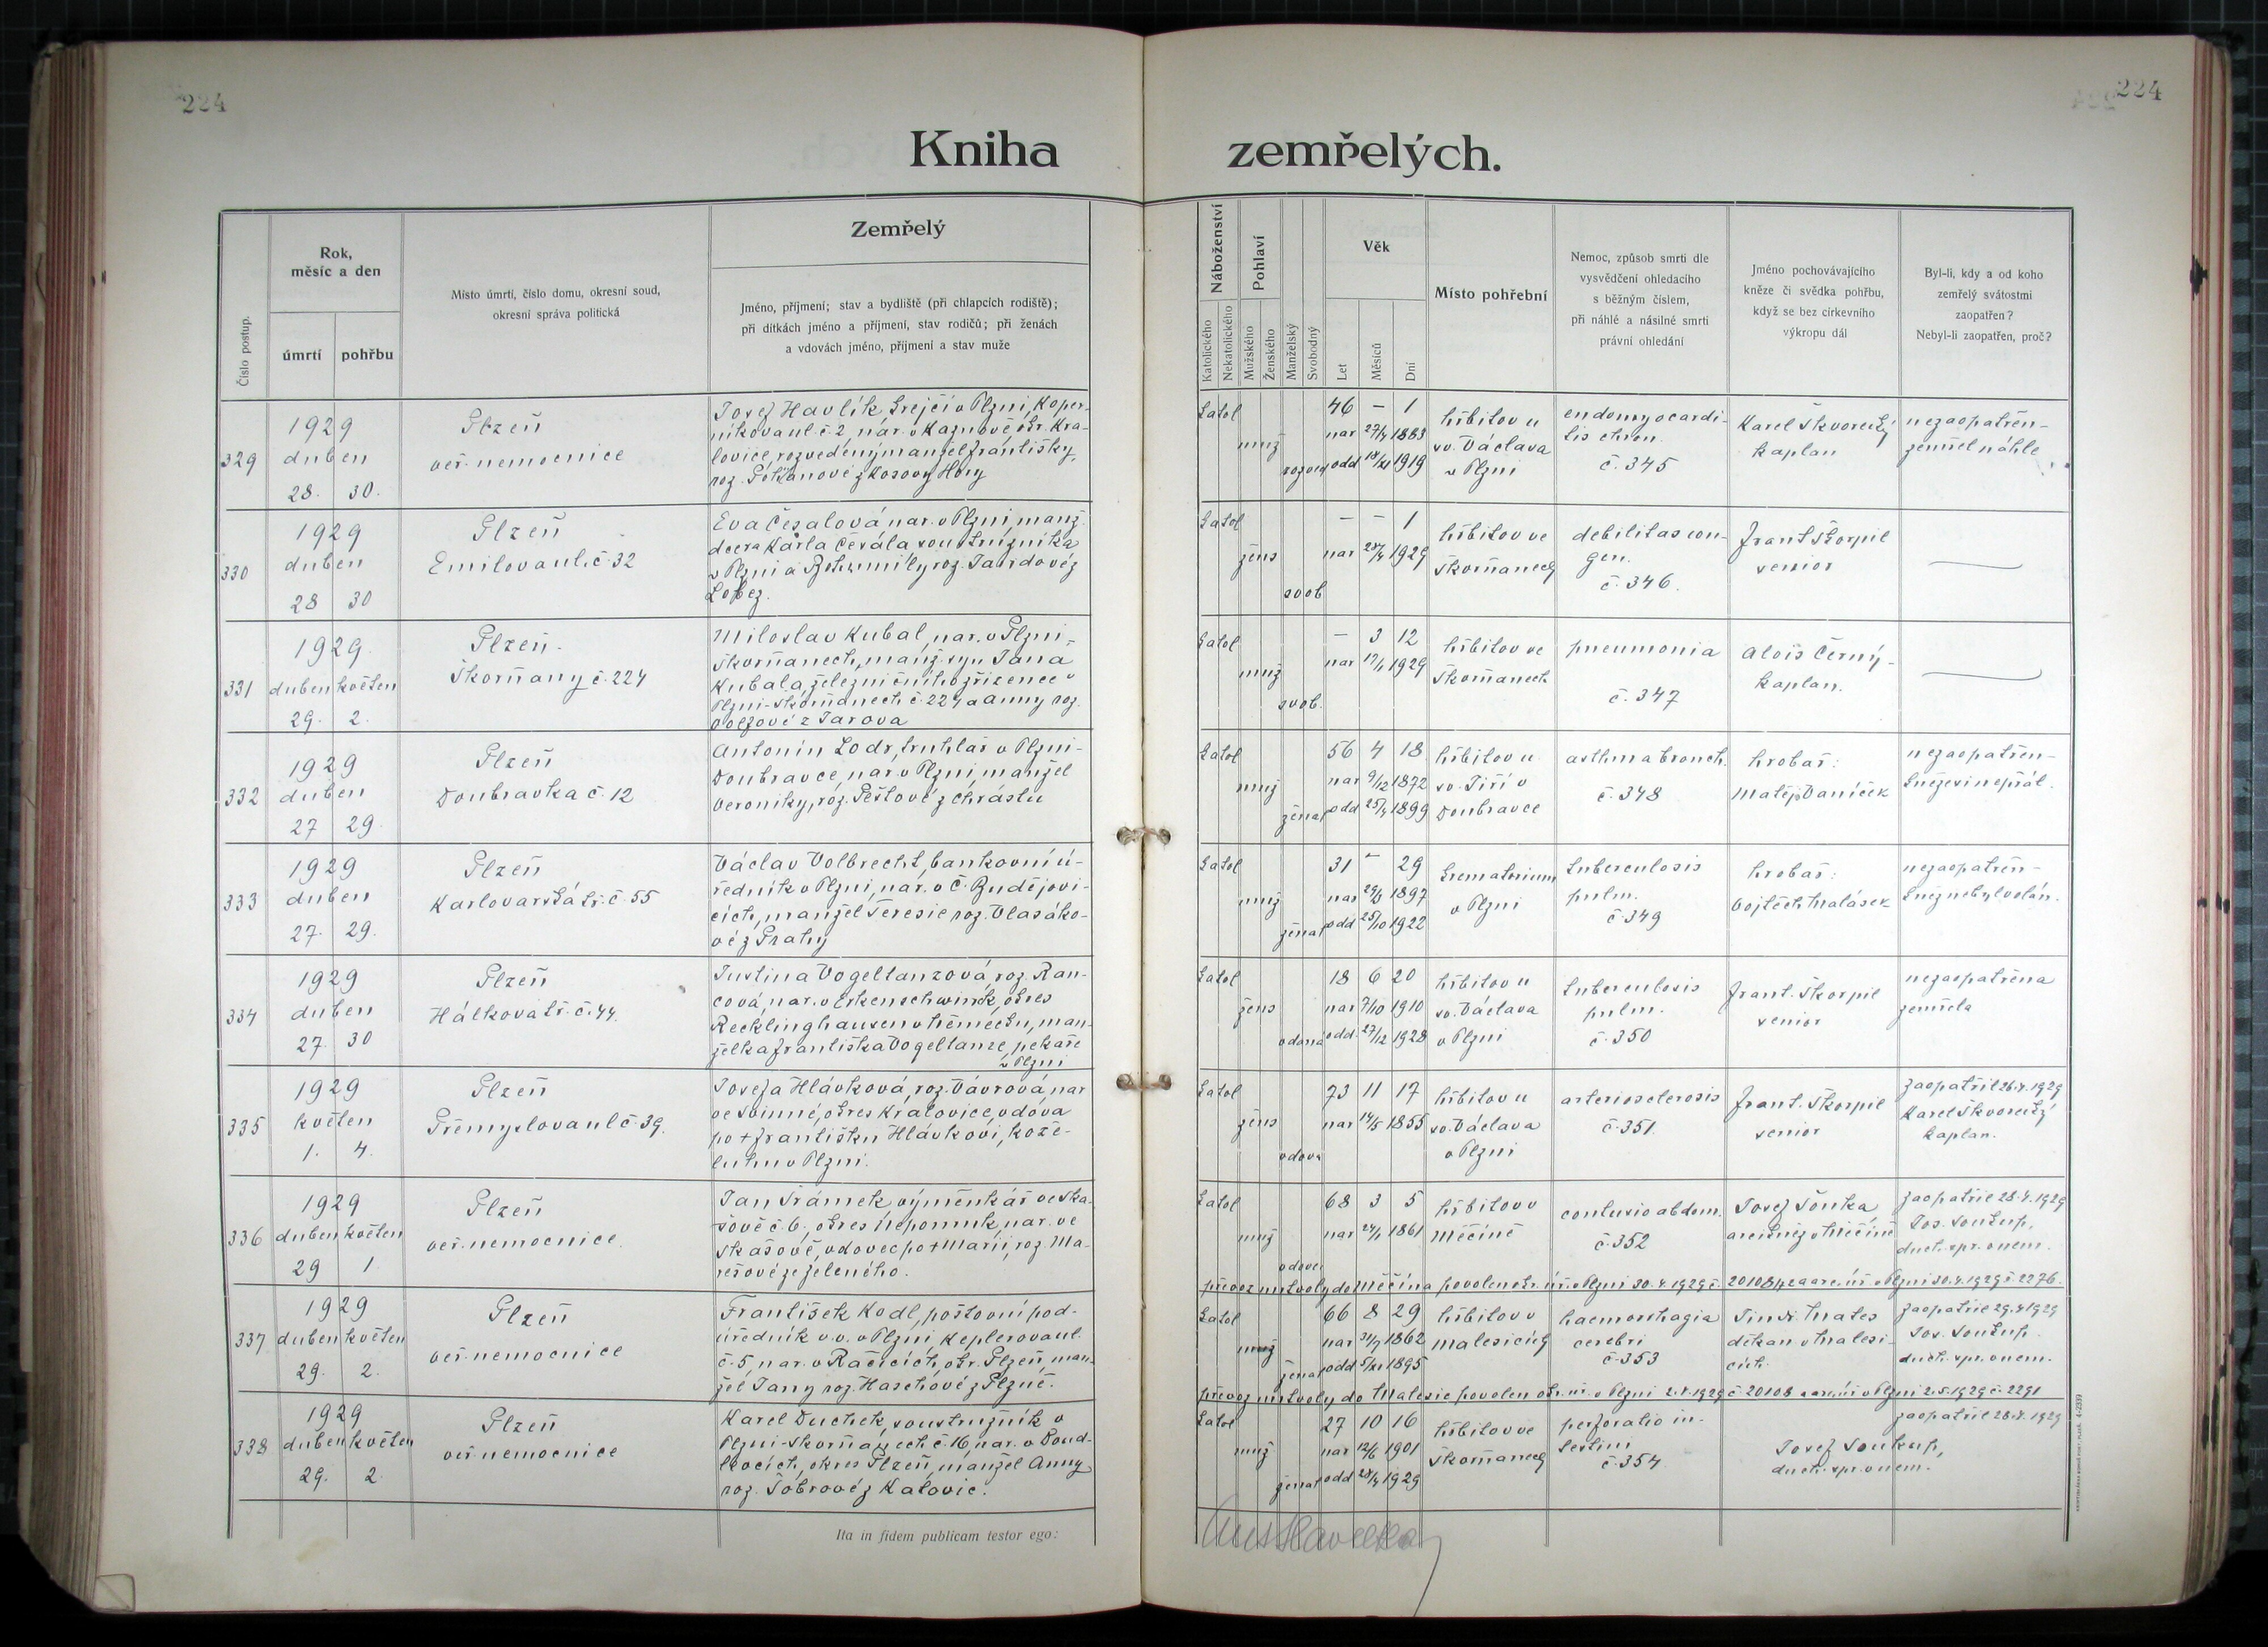 224
224
Kniha zemřelých.
Číslo postup.
Rok,
měsíc a den
úmrtí
pohřbu
Místo úmrtí, číslo domu, okresní soud,
okresní správa politická
Zemřelý
Jméno, příjmení; stav a bydliště (při chlapcích rodiště);
při dítkách jméno a příjmení, stav rodičů; při ženách
a vdovách jméno, příjmení a stav muže
Náboženství
Katolického
Nekatolického
Pohlaví
Mužského
Ženského
Manželský
Svobodný
Věk
Let
Měsíců
Dní
Místo pohřební
Nemoc, způsob smrti dle
vysvědčení ohledacího
s běžným číslem,
při náhlé a násilné smrti
právní ohledání
Jméno pochovávajícího
kněze či svědka pohřbu,
když se bez církevního
výkropu dál
Byl-li, kdy a od koho
zemřelý svátostmi
zaopatřen?
Nebyl-li zaopatřen, proč?
329
1929
duben
28. 30.
Plzeň
veř. nemocnice
Josef Havlík, krejčí v Plzni, Koper-
níkova ul. č. 2, nar. v Kaznově okr. Kra-
lovice, rozvedený manžel Františky,
roz. z Kosovy Hory
katol
muž
rozved
46 – 1
nar 27/4 1883
odd 18/XI 1919
hřbitov u
sv. Václava
v Plzni
endomyocardi-
tis chron.
č. 345
Karel Škvorecký
kaplan
nezaopatřen-
zemřel náhle
330
1929
duben
28 30
Plzeň
Emilova ul. č. 32
Eva Česalová nar. v Plzni, manž.
dcera Karla soustružníka
v Plzni a Bohumily roz. z
Lobez.
katol
žens
svob.
– – 1
nar 27/4 1929
hřbitov ve
Skvrňanech
debilitas con-
gen.
č. 346.
Frant. Škorpil
senior
331
1929.
duben květen
29. 2.
Plzeň-
Škvrňany č. 224
Miloslav Kubal, nar. v Plzni-
Škvrňanech, manž. syn Jana
Kubala, železničního zřízence v
Plzni-Skvrňanech č. 224 a Anny roz.
z Tarova
katol
muž
svob.
– 3 12
nar 17/1 1929
hřbitov ve
Skvrňanech
pneumonia
č. 347
Alois Černý-
kaplan.
332
1929
duben
27 29.
Plzeň
Doubravka č. 12
Antonín Lodr, truhlář v Plzni-
Doubravce, nar. v Plzni, manžel
Veroniky, roz. Peštové z Chrástu
katol
muž
ženat
56 4 18
nar 9/12 1872
odd 25/4 1899
hřbitov u
sv. Jiří v
Doubravce
asthma bronch.
č. 348
hrobař:
Matěj Vaníček
nezaopatřen-
kněze si nepřál.
333
1929
duben
27. 29.
Plzeň
Karlovarská tř. č. 55
Václav Volbrecht, bankovní ú-
ředník v Plzni, nar. v Č. Budějovi-
cích, manžel Terezie roz. Vlasáko-
vé z Prahy
katol
muž
ženat
31 – 29
nar 29/3 1897
odd 25/10 1922
krematorium
v Plzni
tuberculosis
pulm.
č. 349
hrobař:
Vojtěch Malásek
nezaopatřen-
kněz nebyl volán.
334
1929
duben
27. 30
Plzeň
Hálkova tř. č. 44.
Justina Vogeltanzová, roz. Ran-
cová, nar. v Erkenschwinck, okres
Recklinghausen v Německu, man-
želka Františka Vogeltanze, pekaře
v Plzni
katol
žens
vdaná
18 6 20
nar 7/10 1910
odd. 27/12 1928
hřbitov u
sv. Václava
v Plzni
tuberculosis
pulm.
č. 350
Frant. Škorpil
senior
nezaopatřena
zemřela
335
1929
květen
1. 4.
Plzeň
Přemyslova ul. č. 39.
Josefa Hlávková, roz. Vávrová, nar
ve Svinné, okres Kralovice, vdova
po + Františku Hlávkovi, kože-
luhu v Plzni.
katol
žens
vdova
73 11 17
nar 14/5 1855
hřbitov u
sv. Václava
v Plzni
arteriosclerosis
č. 351.
Frant. Škorpil
senior
zaopatřil 26.4.1929
Karel Škvorecký
kaplan.
336
1929
duben květen
29 1
Plzeň
veř. nemocnice.
Jan Šrámek, výměnkář ve Ska-
šově č. 6, okres Nepomuk, nar. ve
Skašově, vdovec po + Marii, roz. Ma-
rešové ze Zeleného.
katol
muž
vdovec
68 3 5
nar 24/1 1861
hřbitov v
Měčíně
contusio abdom.
č. 352
Josef Šonka,
arcikněz v Měčíně
zaopatřil 28.4.1929
Jos. Soukup,
duch. spr. v nem.
převoz mrtvoly do Měčína povolen okr. úř. v Plzni 30.4.1929 č. 201084/2 a arc. úř. v Plzni 30.4.1929 č. 2276.
337
1929
duben květen
29. 2.
Plzeň
veř. nemocnice
František Kodl, poštovní pod-
úředník v.v. v Plzni, Keplerova ul.
č. 5, nar. v Račicích, okr. Plzeň, man-
žel Jany roz. Haschové z Plzně.
katol
muž
ženat
66 8 29
nar 31/7 1862
odd 5/XI 1895
hřbitov v
Malesicích
haemorrhagia
cerebri
č. 353
Jindř. Mates
děkan v Malesi-
cích.
zaopatřil 29.4.1929
Jos. Soukup.
duch. spr. v nem.
převoz mrtvoly do Malesic povolen okr. úř. v Plzni 2.5.1929 č. 20108 a arc. úř. v Plzni 2.5.1929 č. 2291
338
1929
duben květen
29. 2
Plzeň
veř. nemocnice
Karel Duchek, soustružník v
Plzni-Skvrňanech č. 16, nar. v
okres Plzeň, manžel Anny
roz. Tóbrové z Katovic.
katol
muž
ženat
27 10 16
nar 12/6 1901
odd 28/4 1929
hřbitov ve
Skvrňanech
perforatio in-
testini
č. 354
zaopatřil 28.4.1929
Josef Soukup,
duch. spr. v nem.
Ita in fidem publicam testor ego: